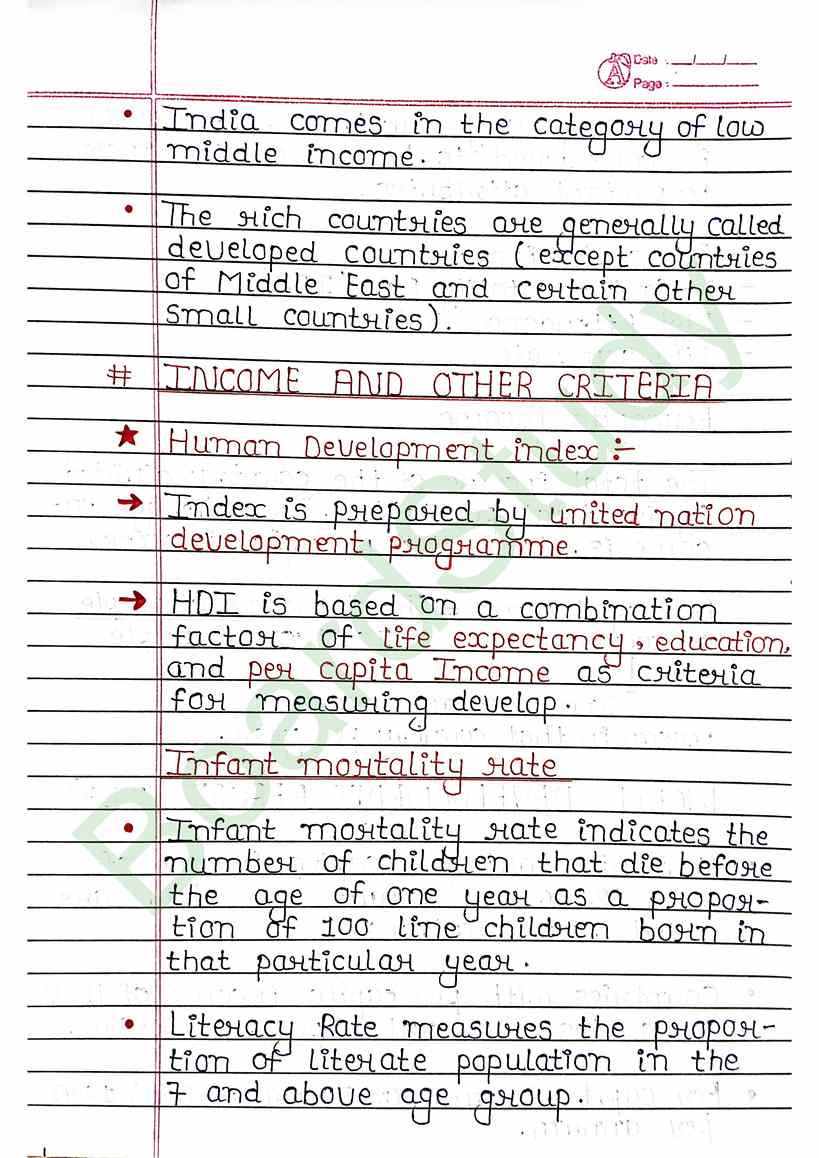 Date : __/__/__
Page : ______
• India comes in the category of low
middle income.
• The rich countries are generally called
developed countries (except countries
of Middle East and certain other
small countries).
# INCOME AND OTHER CRITERIA
★ Human Development index :-
→ Index is prepared by united nation
development programme.
→ HDI is based on a combination
factor of life expectancy, education,
and per capita Income as criteria
for measuring develop.
Infant mortality rate
• Infant mortality rate indicates the
number of children that die before
the age of one year as a propor-
tion of 100 line children born in
that particular year.
• Literacy Rate measures the propor-
tion of literate population in the
7 and above age group.
BoardStudy